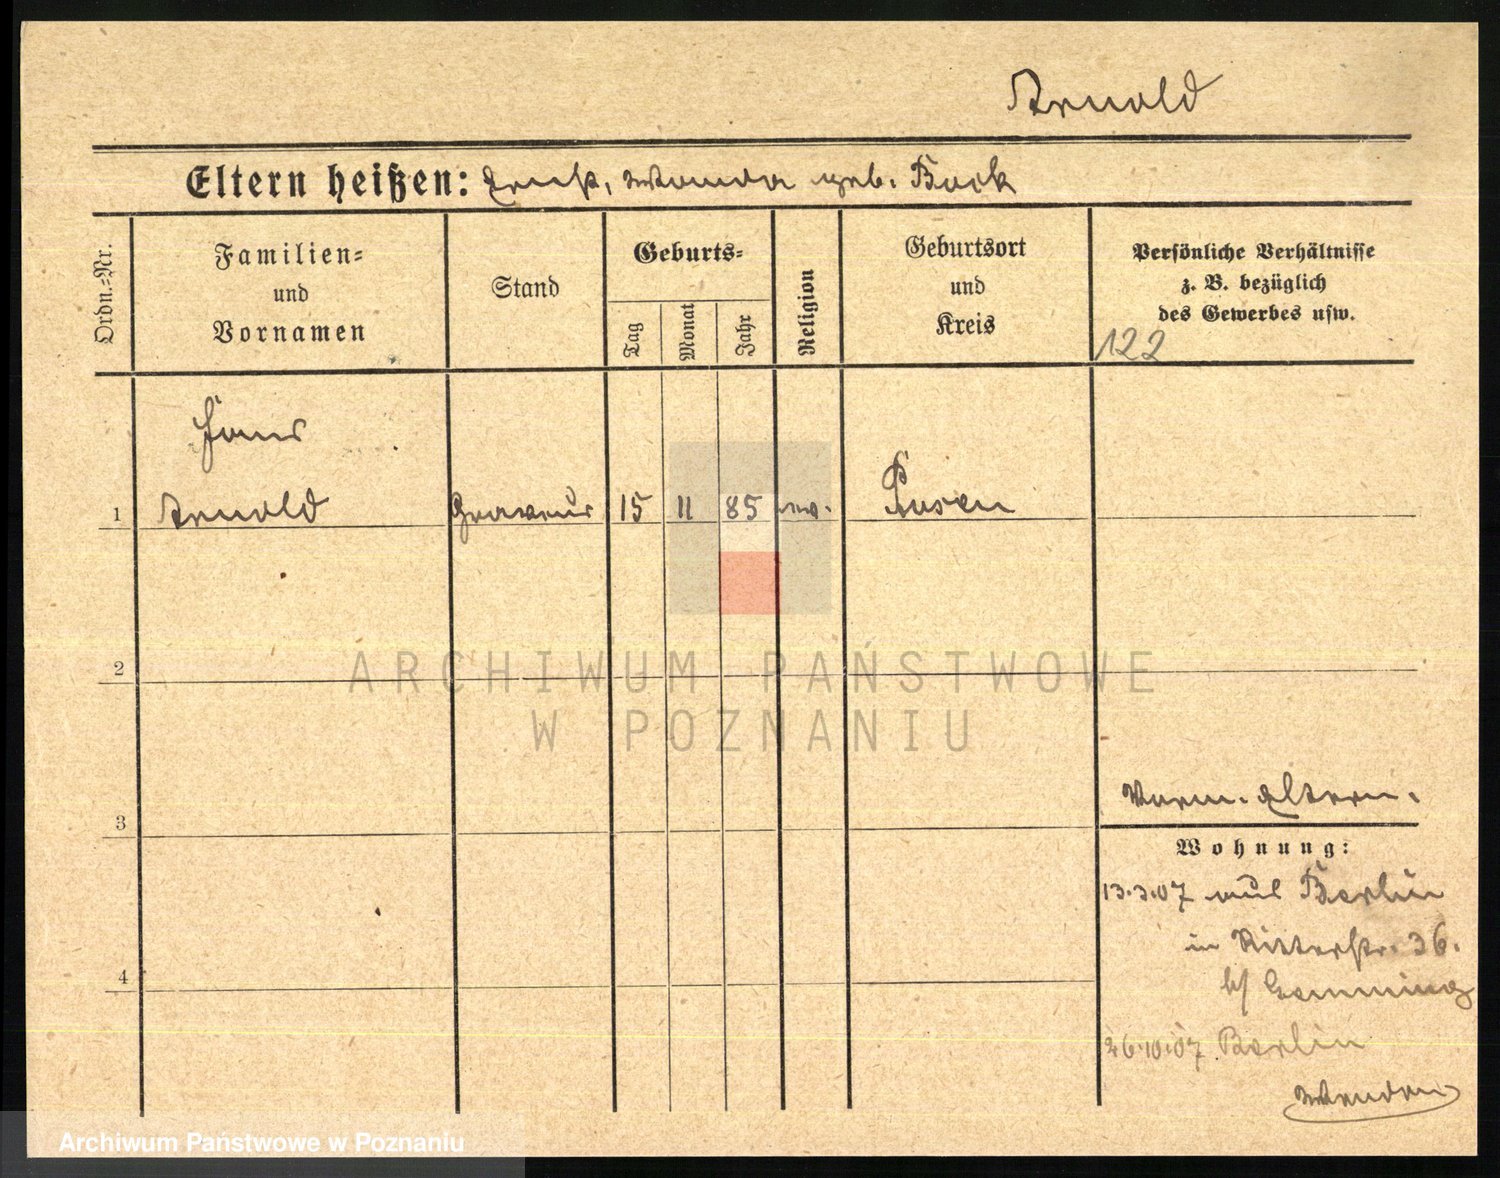 Arnold
Eltern heißen: Ernst, Wanda geb. Bock
Ordn.-Nr.
Familien-
und
Vornamen
Stand
Geburts-
Tag
Monat
Jahr
Religion
Geburtsort
und
Kreis
Persönliche Verhältnisse
z. B. bezüglich
des Gewerbes usw.
122
Hans
1 Arnold Graveur 15 11 85 ev. Posen
2
3
4
Vorm. Eltern.
Wohnung:
13.3.07 aus Berlin
in Ritterstr. 36.
b/
26.10.07 Berlin
ARCHIWUM PAŃSTWOWE
W POZNANIU
Archiwum Państwowe w Poznaniu